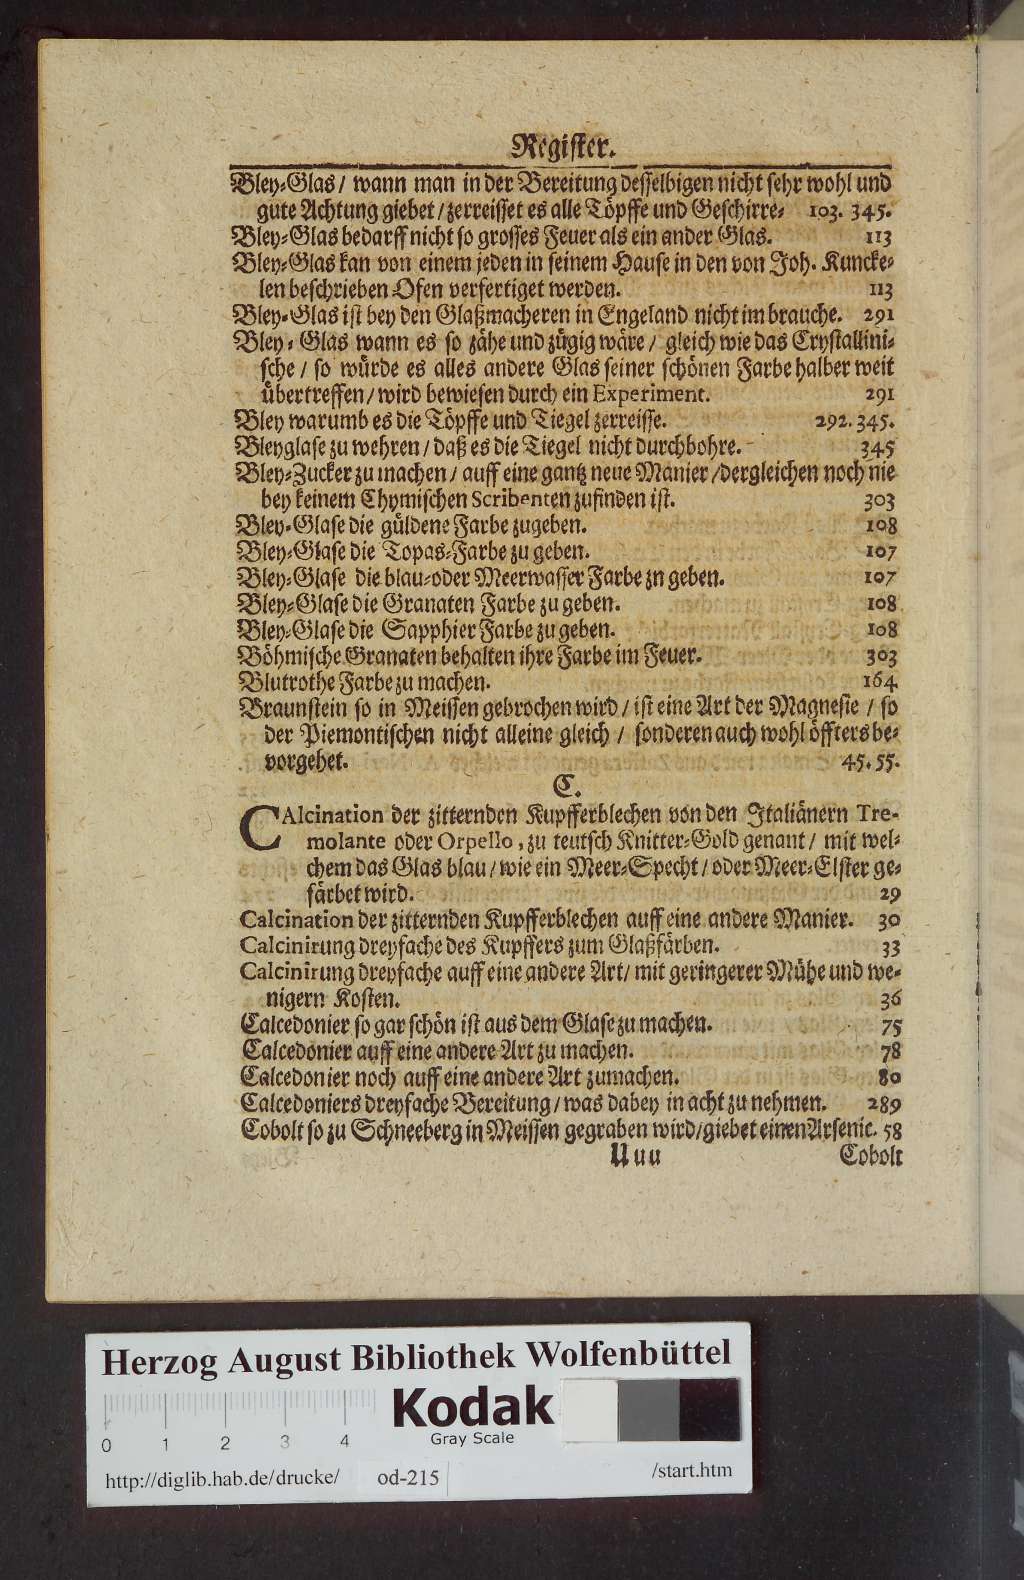 Register.
Bley-Glas / wann man in der Bereitung desselbigen nicht sehr wohl und
gute Achtung giebet / zerreisset es alle Töpffe und Geschirre- 103. 345.
Bley-Glas bedarff nicht so grosses Feuer als ein ander Glas. 113
Bley-Glas kan von einem jeden in seinem Hause in den von Joh. Kuncke-
len beschrieben Ofen verfertiget werden. 113
Bley-Glas ist bey den Glaßmacheren in Engeland nicht im brauche. 291
Bley-Glas wann es so zähe und zügig wäre / gleich wie das Crystallini-
sche / so würde es alles andere Glas seiner schönen Farbe halber weit
übertreffen / wird bewiesen durch ein Experiment. 291
Bley warumb es die Töpffe und Tiegel zerreisse. 292. 345.
Bleyglase zu wehren / daß es die Tiegel nicht durchbohre. 345
Bley-Zucker zu machen / auff eine gantz neue Manier / dergleichen noch nie
bey keinem Chymischen Scribenten zufinden ist. 303
Bley-Glase die güldene Farbe zugeben. 108
Bley-Glase die Topas-Farbe zu geben. 107
Bley-Glase die blau-oder Meerwasser Farbe zn geben. 107
Bley-Glase die Granaten Farbe zu geben. 108
Bley-Glase die Sapphier Farbe zu geben. 108
Böhmische Granaten behalten ihre Farbe im Feuer. 303
Blutrothe Farbe zu machen. 164
Braunstein so in Meissen gebrochen wird / ist eine Art der Magnesie / so
der Piemontischen nicht alleine gleich / sonderen auch wohl öffters be-
vorgehet. 45. 55.
C.
CAlcination der zitternden Kupfferblechen von den Italiänern Tre-
molante oder Orpello, zu teutsch Knitter-Gold genant / mit wel-
chem das Glas blau / wie ein Meer-Specht / oder Meer-Elster ge-
färbet wird. 29
Calcination der zitternden Kupfferblechen auff eine andere Manier. 30
Calcinirung dreyfache des Kupffers zum Glaßfärben. 33
Calcinirung dreyfache auff eine andere Art / mit geringerer Mühe und we-
nigern Kosten. 36
Calcedonier so gar schön ist aus dem Glase zu machen. 75
Calcedonier auff eine andere Art zu machen. 78
Calcedonier noch auff eine andere Art zumachen. 80
Calcedoniers dreyfache Bereitung / was dabey in acht zu nehmen. 289
Cobolt so zu Schneeberg in Meissen gegraben wird / giebet einen Arsenic. 58
Uuu Cobolt
Herzog August Bibliothek Wolfenbüttel
Kodak
Gray Scale
0 1 2 3 4
http://diglib.hab.de/drucke/ od-215 /start.htm